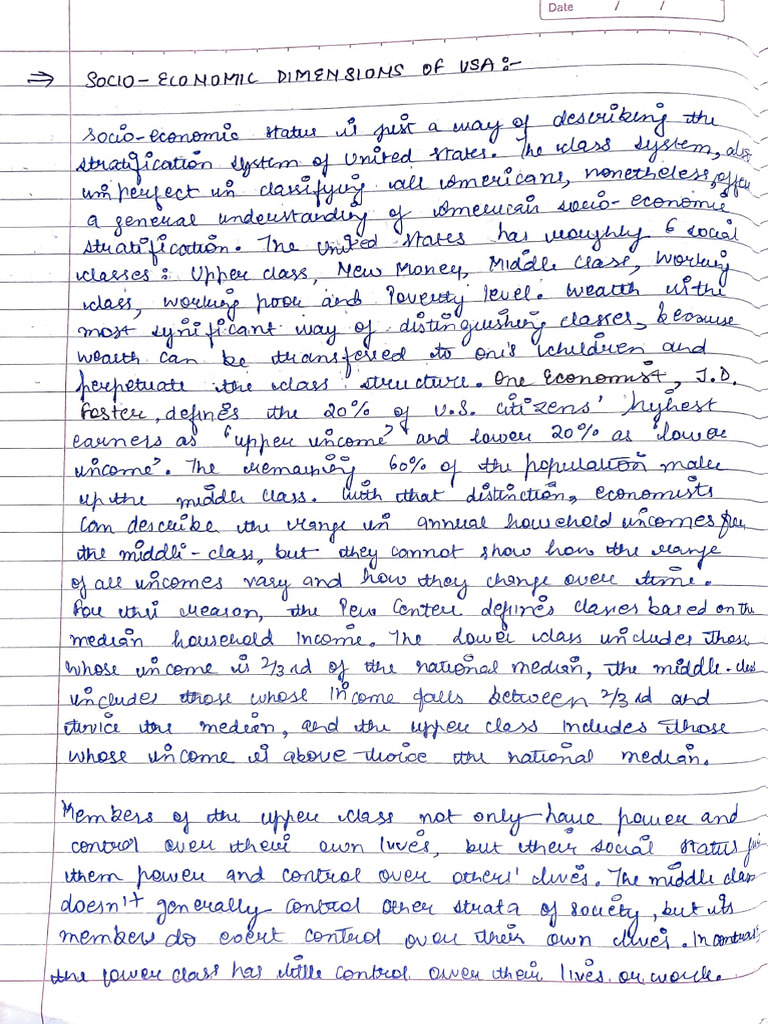 Date / /
⇒ SOCIO-ECONOMIC DIMENSIONS OF USA:-
Socio-economic status is just a way of describing the
stratification system of United States. The class system, also
imperfect in classifying all Americans, nonetheless, offers
a general understanding of American socio-economic
stratification. The United States has roughly 6 social
classes: Upper class, New Money, Middle Class, Working
class, working poor and Poverty level. Wealth is the
most significant way of distinguishing classes, because
wealth can be transfered to one's children and
perpetuate the class structure. One Economist, J.D.
Foster, defines the 20% of U.S. citizens' highest
earners as 'upper income' and lower 20% as 'lower
income'. The remaining 60% of the population make
up the middle class. With that distinction, economists
can describe the range in annual household incomes for
the middle-class, but they cannot show how the range
of all incomes vary and how they change over time.
For this reason, the Pew Center defines classes based on the
median household income. The lower class includes those
whose income is 2/3 rd of the national median, the middle-class
includes those whose income falls between 2/3 rd and
twice the median, and the upper class includes those
whose income is above twice the national median.
Members of the upper class not only have power and
control over their own lives, but their social status
them power and control over others' lives. The middle class
doesn't generally control other strata of society, but its
members do exert control over their own lives. In contrast,
the lower class has little control over their lives or work.